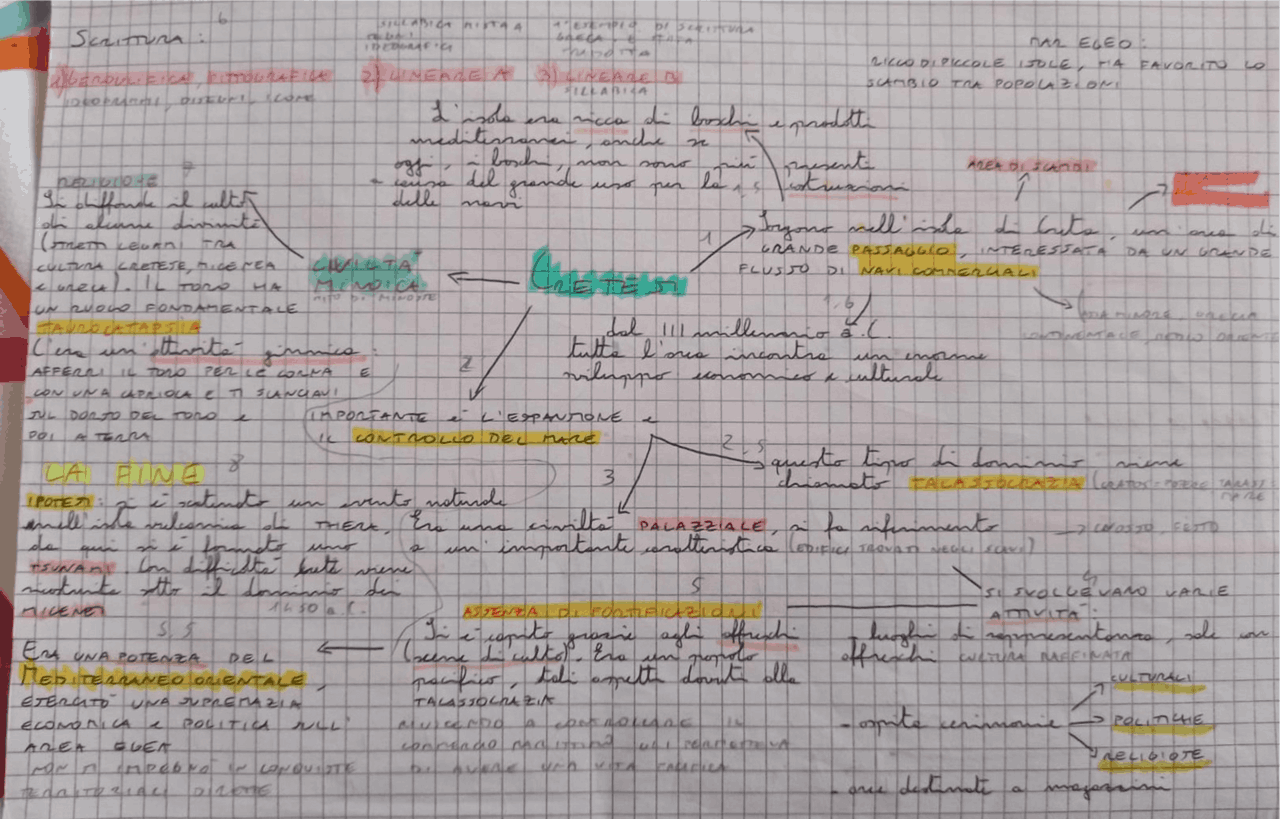 6
SCRITTURA:
SILLABICA MISTA A
IDEOGRAFICA
1° ESEMPIO DI SCRITTURA
GRECA, È STATA
TRADOTTA
1) GEROGLIFICA, PITTOGRAFICA
2) LINEARE A
3) LINEARE B
IDEOGRAMMI, DISEGNI, ICONE
SILLABICA
MAR EGEO:
RICCO DI PICCOLE ISOLE, HA FAVORITO LO
SCAMBIO TRA POPOLAZIONI
L'isola era ricca di boschi e prodotti
mediterranei, anche se
oggi, i boschi, non sono più presenti
a causa del grande uso per la 1.5 costruzioni
delle navi
AREA DI SCAMBI
7
RELIGIONE
Si diffonde il culto
di alcune divinità
(STRETTI LEGAMI TRA
CULTURA CRETESE, MICENEA
E GRECA). IL TORO HA
UN RUOLO FONDAMENTALE
TAUROCATAPSIA
C'era un'attività ginnica:
AFFERRI IL TORO PER LE CORNA E
CON UNA CAPRIOLA E TI SLANCIAVI
SUL DORSO DEL TORO E
POI A TERRA
CIVILTÀ
MINOICA
MITO DI MINOSSE
CRETESI
1
Sorgono nell'isola di Creta, un'area di
GRANDE PASSAGGIO, INTERESSATA DA UN GRANDE
FLUSSO DI NAVI COMMERCIALI
1.6
CONTINENTALE, MEDIO ORIENTE
dal III millennio a.C.
tutta l'area incontra un enorme
sviluppo economico e culturale
2
IMPORTANTE È L'ESPANSIONE E
IL CONTROLLO DEL MARE
2.5
questo tipo di dominio viene
chiamato TALASSOCRAZIA
3
LA FINE 8
IPOTESI: si è scatenato un evento naturale
nell'isola vulcanica di THERA,
da qui si è formato uno
TSUNAMI. Con difficoltà Creta viene
ricostruita sotto il dominio dei
MICENEI
1450 a.C.
Era una civiltà PALAZZIALE, si fa riferimento → CNOSSO, FESTO
a un'importante caratteristica (EDIFICI TROVATI NEGLI SCAVI)
4
SI SVOLGEVANO VARIE
ATTIVITÀ:
- luoghi di rappresentanza, sale con
affreschi CULTURA RAFFINATA
- ospita cerimonie
CULTURALI
POLITICHE
RELIGIOSE
- aree destinate a magazzini
5
ASSENZA DI FORTIFICAZIONI
Si è capito grazie agli affreschi
(scene di culto). Era un popolo
pacifico, tali aspetti dovuti alla
TALASSOCRAZIA
RIUSCENDO A CONTROLLARE IL
COMMERCIO MARITTIMO GLI PERMETTEVA
DI AVERE UNA VITA PACIFICA
5,5
ERA UNA POTENZA DEL
MEDITERRANEO ORIENTALE,
ESERCITÒ UNA SUPREMAZIA
ECONOMICA E POLITICA SULL'
AREA EGEA
NON SI IMPEGNÒ IN CONQUISTE
TERRITORIALI DIRETTE